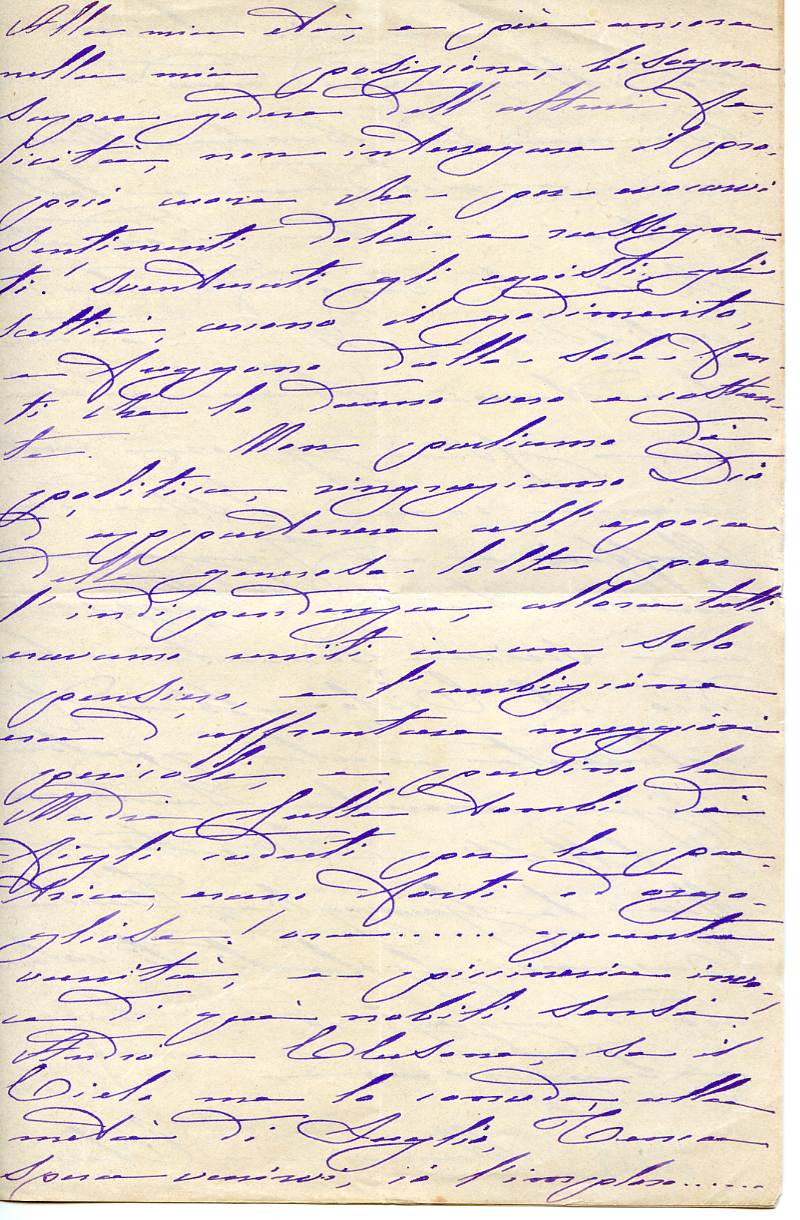 Alla mia età, e più ancora
nella mia posizione, bisogna
saper godere dell'altrui fe-
licità, non interrogare il pro-
prio cuore che per evocarvi
sentimenti delicati e rassegna-
ti. Sventurati gli egoisti, gli
scettici, cercano il godimento,
e fuggono dalle sole fon-
ti che lo danno vero e costan-
te. Non parliamo di
politica, ringraziamo Dio
d'appartenere all'epoca
delle generose lotte per
l'indipendenza, allora tutti
eravamo uniti in un solo
pensiero, e l'ambizione
era d'affrontare maggiori
pericoli, e persino le
Madri sulle tombe dei
figli caduti per la pa-
tria, erano forti ed orgo-
gliose! ora...... quante
vanità, e piccinerie invece
di quei nobili sensi!
Andrò a Clusone, se il
Cielo me lo concede, alla
metà di Luglio,
spera venirvi, io l'imploro......